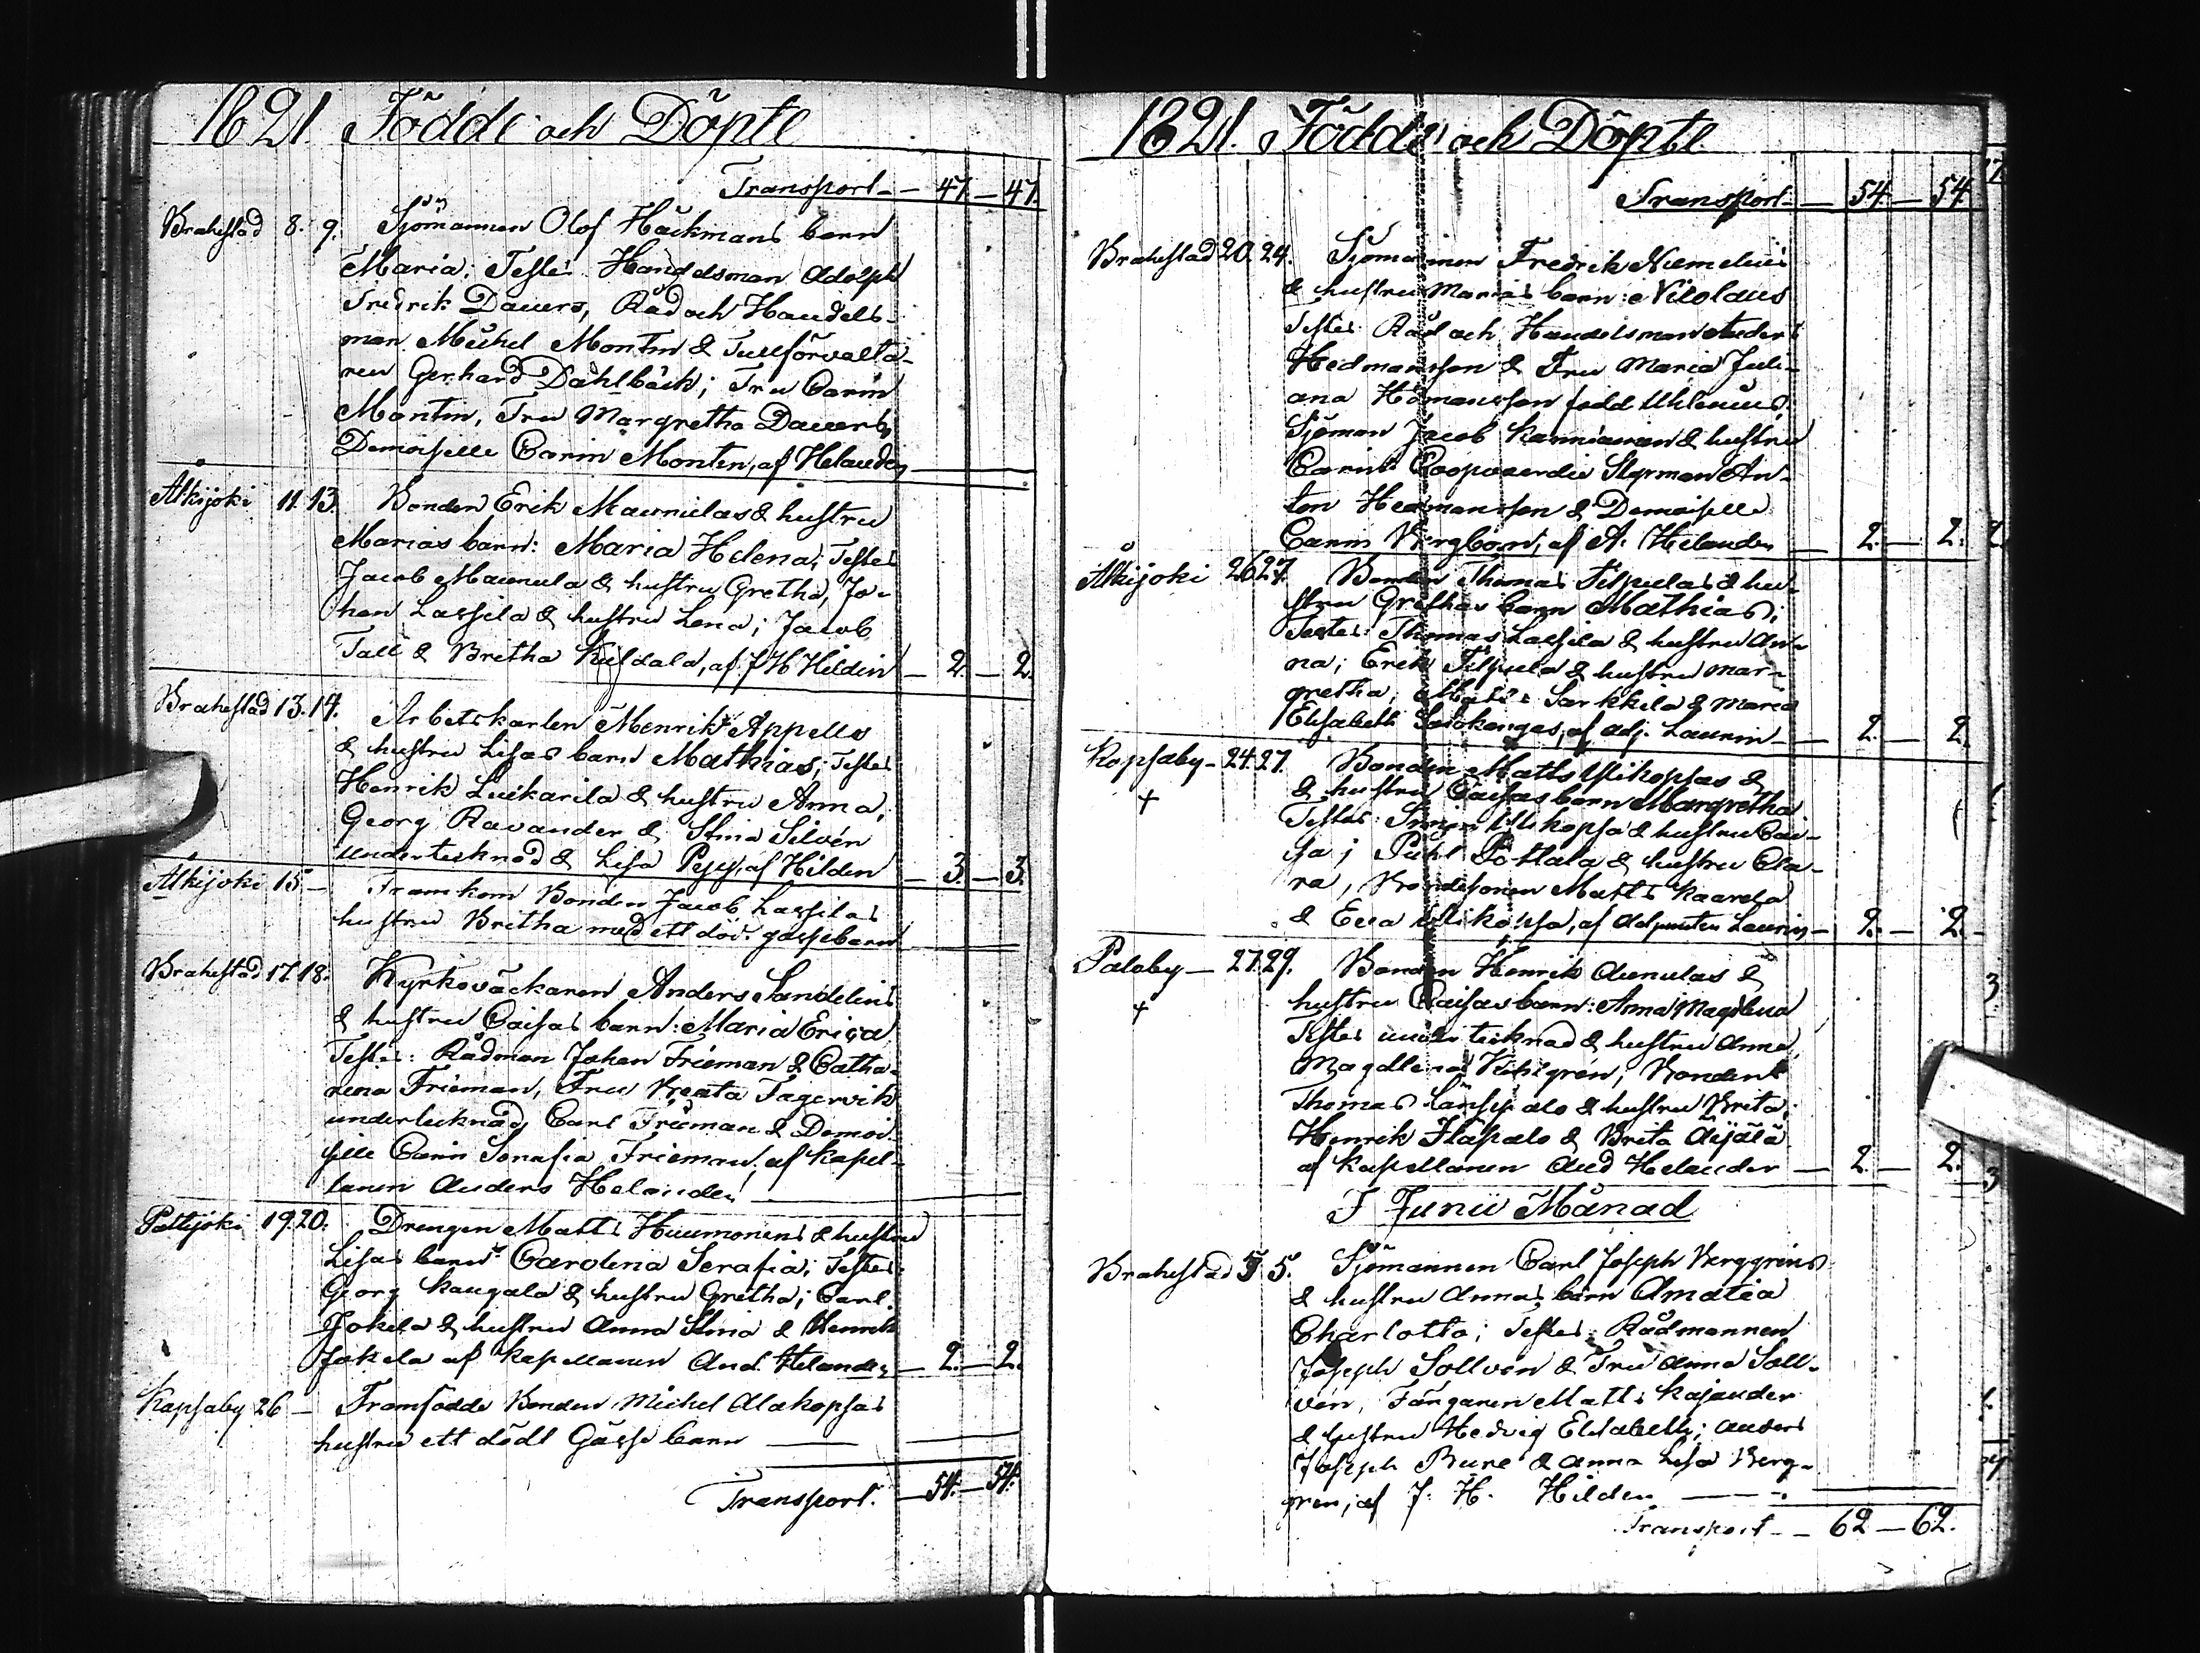 1821 Födde och Döpte
Transport - - 47. - 47.
Brahestad 8. 9. Sjömannen Olof Häckmans barn
Maria; Testes Handelsman Adolph
Fredrik Dauers, Råd och Handels-
man Michel Montin & Tullförvalta-
ren Gerhard Dahlbäck; Fru Carin
Montin, Fru Margretha Dauers,
Demoiselle Carin Monten, af Helander
Alkijoki 11. 13. Bonden Erik Maunulas & hustru
Marias barn: Maria Helena; Testes
Jacob Maunula & hustru Gretha, Jo-
han Lassila & hustru Lena; Jacob
Tall & Britha, af J H Hilden - 2. - 2.
Brahestad 13. 14. Arbetskarlen Henrik Appells
& hustru Lisas barn Mathias; Testes
Henrik Luikarila & hustru Anna,
Georg Ravander & Stina Silvén
undertecknad & Lisa, af Hilden - 3. - 3.
Alkijoki 15. - Framkom Bonden Jacob Lassilas
hustru Britha med ett död. gossebarn
Brahestad 17. 18. Kyrkoväckaren Anders Sandelins
& hustru Caisas barn: Maria Erica
Testes: Rådman Johan Frieman & Catha-
rina Frieman, Fru Beata Fagervik
undertecknad, Carl Frieman & Demoi-
selle Carin Serafia Frieman, af kapel-
lanen Anders Helander
Pattijoki 19. 20. Drengen Matts Huumonens & hustru
Lisas barn: Carolina Serafia; Testes:
Georg Kangala & hustru Gretha; Carl
Jokela & hustru Anna Stina & Henrik
Jokela af kapellanen And. Helander - 2. - 2.
Kopsaby 26 - Framfödde Bonden Michel Alakopsas
hustru ett dödt Gosse barn
Transport. - 54. - 54.
1821. Födde och Döpte
Transport - - 54. - 54.
Brahestad 20. 24. Sjömannen Fredrik Niemelins
& hustru Marias barn: Nikolaus
Testes: Råd och Handelsman Anders
Hedmansson & Fru Maria Juli-
ana Hedmansson född Uhlenius,
Sjöman Jacob Kanniainen & hustru
Carin Coopvaerdie Styrman An-
ton Hedmansson & Demoiselle
Carin Bergbom, af A. Helander - 2. - 2.
Alkijoki 26 27. Bonden Thomas Filpulas & hu-
stru Grethas barn Mathias;
Testes: Thomas Lassila & hustru An-
na; Erik Filpula & hustru Mar-
gretha, Matts Sarkkila & Maria
Elisabeth, af adj. Laurin - 2. - 2.
Kopsaby - 24. 27. Bonden Matts Ylikopsas &
+ & hustru Caisas barn Margretha
Testes: Simon Ylikopsa & hustru Cai-
sa; Pehr Pottala & hustru Cla-
ra, Bondesonen Matts Kaarela
& Eva Ylikopsa, af Adjuncten Laurin - 2. - 2.
Paloby - 27. 29. Bonden Henrik Aunulas &
+ hustru Caisas barn: Anna Magdlena
Testes undertecknad & hustru Anna
Magdlena, Bonden
Thomas Länsipalo & hustru Brita;
Henrik Itäpalo & Brita Äijälä
af kapellanen And Helander - 2. - 2.
I Junii Månad
Brahestad 3 5. Sjömannen Carl Joseph Berggrens
& hustru Annas barn Amalia
Charlotta; Testes: Rådmannen
Joseph Sollvén & Fru Anna Soll-
vén, Färgaren Matts Kajander
& hustru Hedvig Elisabeth; Anders
Joseph Bure & Anna Lisa Berg-
gren; af J. H. Hilden
Transport - - 62 - 62.